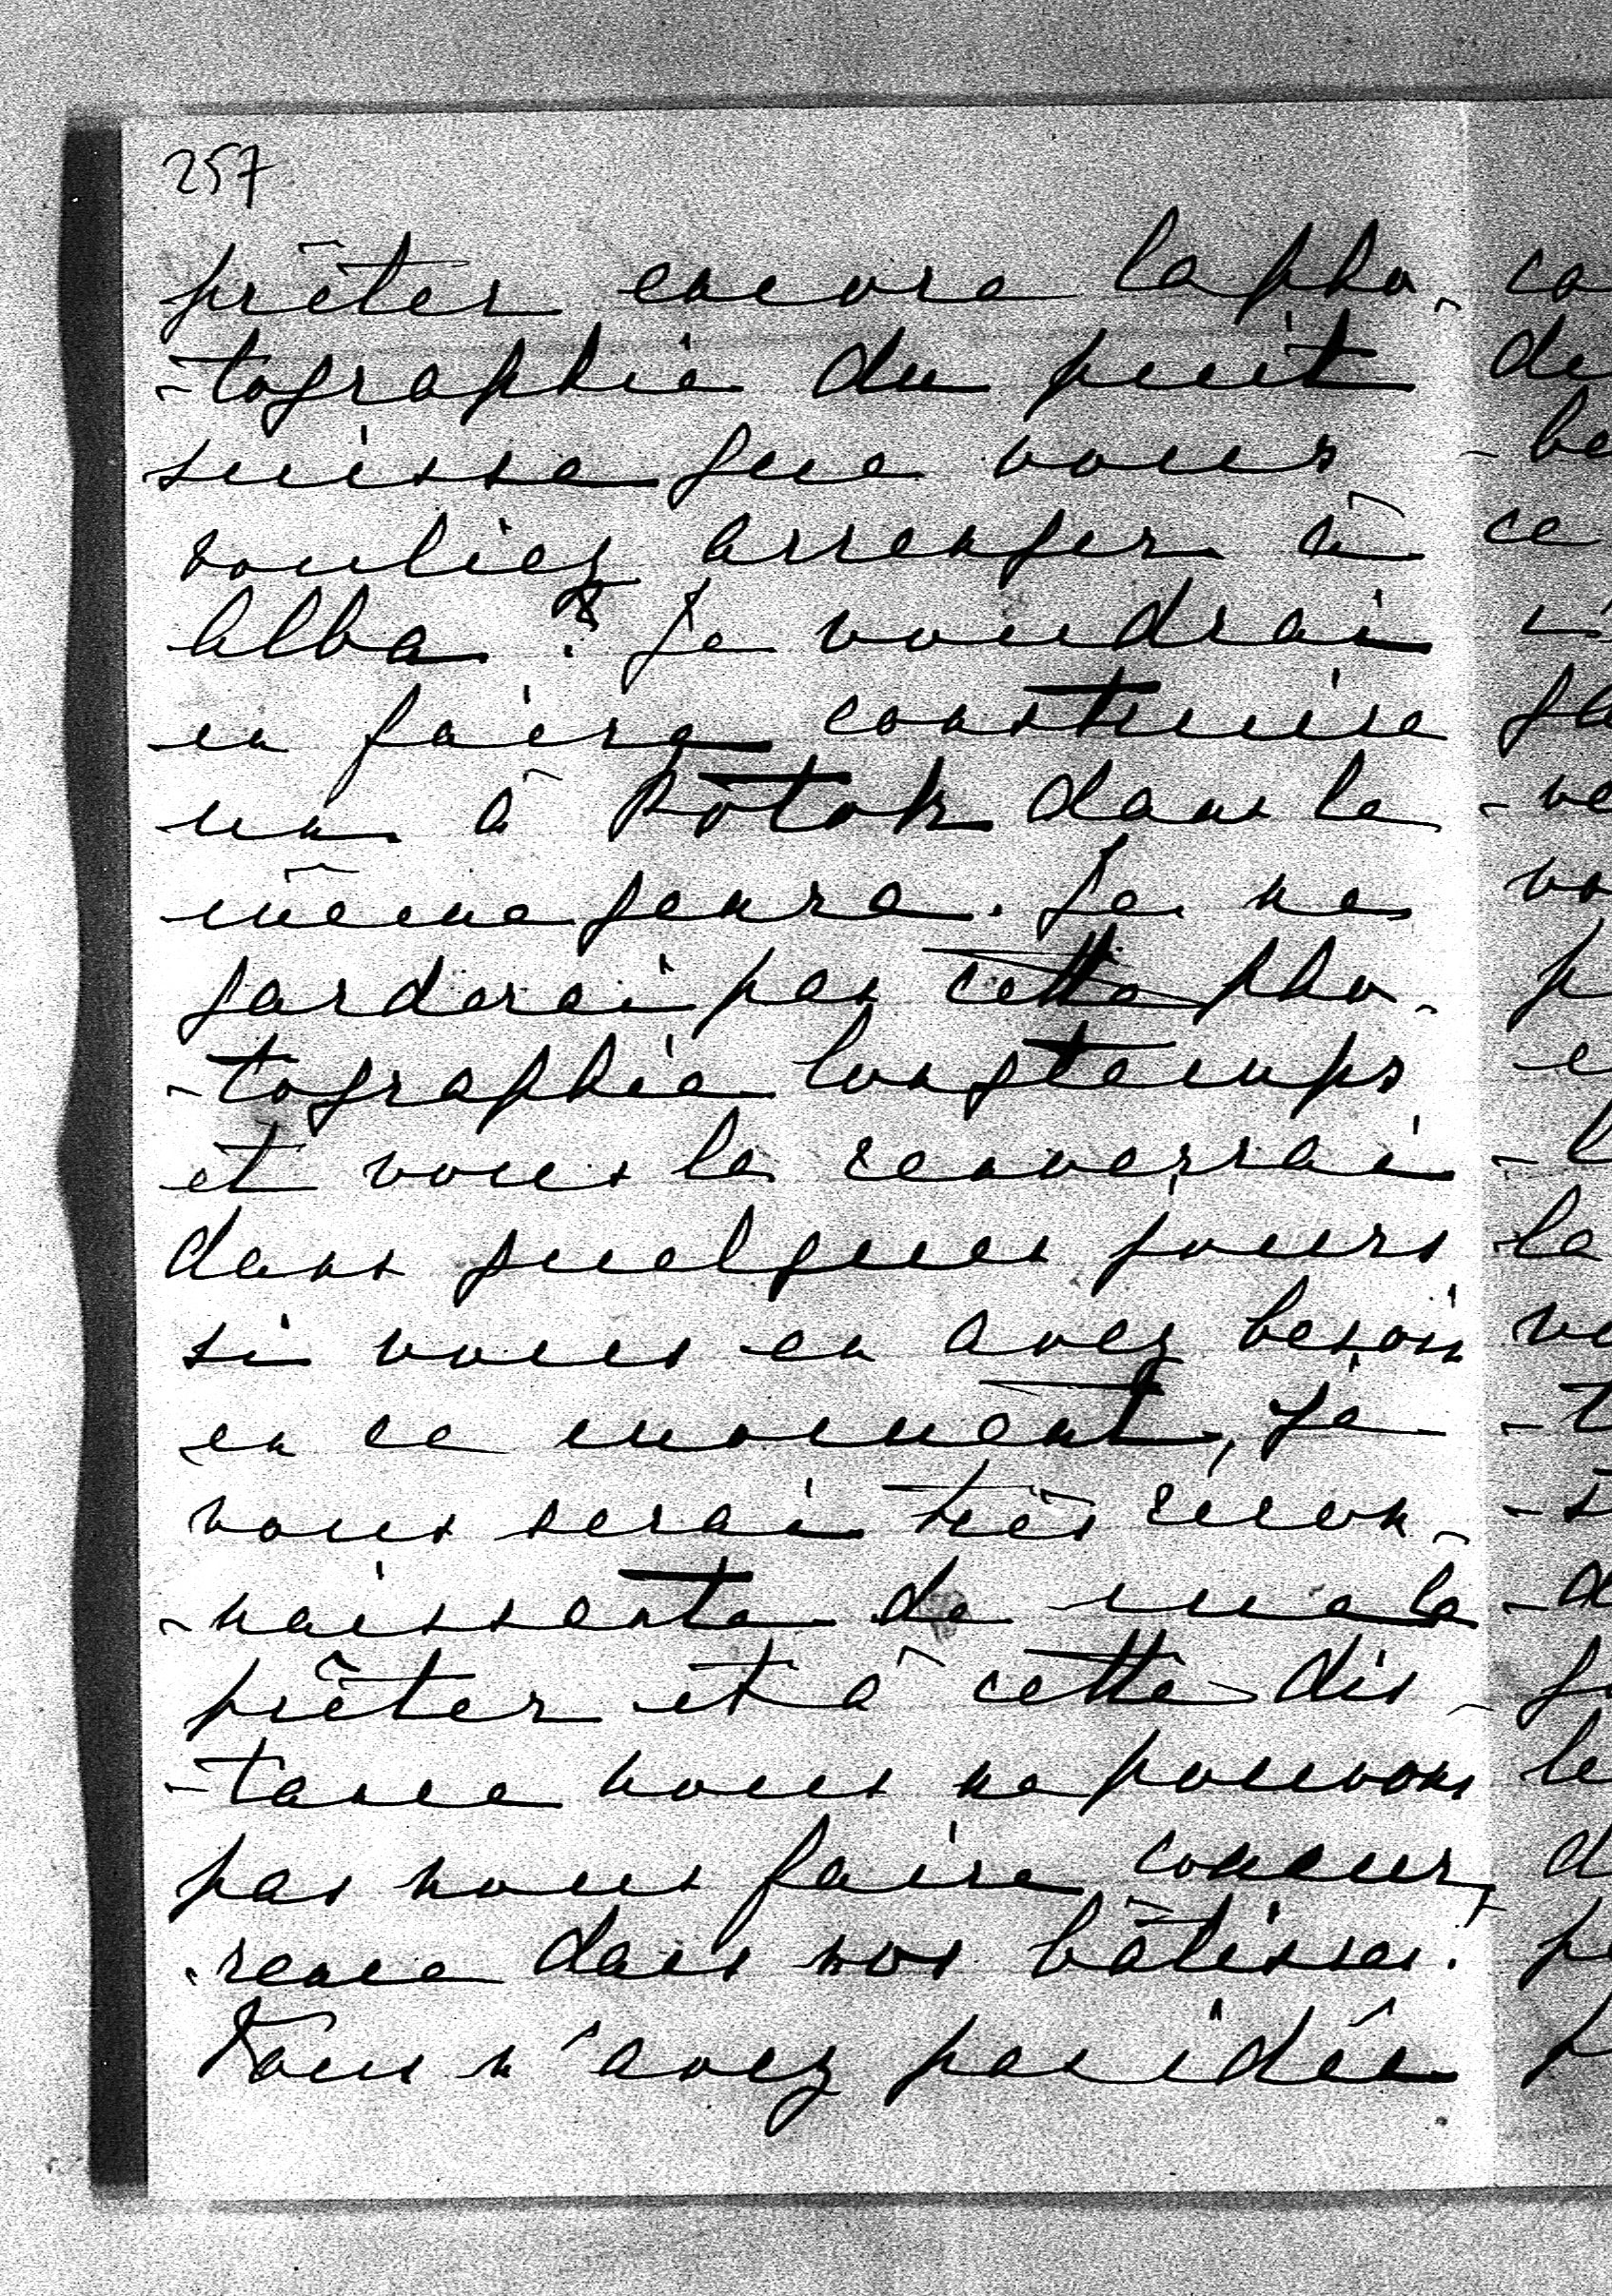 257
prêter encore la pho-
-tographie du puit
suisse que vous
vouliez arranger à
Alba ? Je voudrai
en faire construire
un à Potok dans le
même genre. Je ne
garderai pas cette pho-
-tographie longtemps
et vous la renverrai
dans quelques jours
si vous en avez besoin
en ce moment, Je
vous serai très recon-
-naissante de me la
prêter et à cette dis-
-tance nous ne pouvons
pas nous faire concur-
-rence dans nos bâtisses.
Vous n'avez pas idée